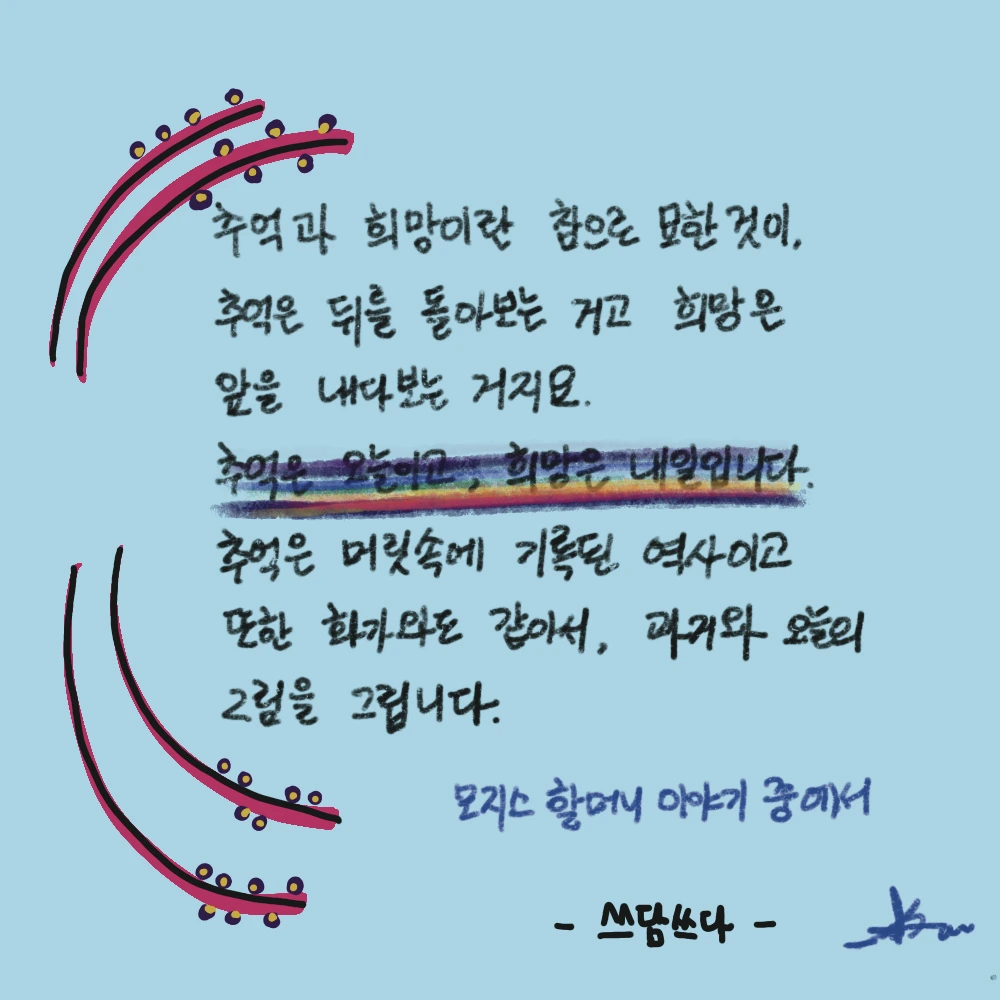 추억과 희망이란 참으로 묘한 것이,
추억은 뒤를 돌아보는 거고 희망은
앞을 내다보는 거지요.
추억은 오늘이고, 희망은 내일입니다.
추억은 머릿속에 기록된 역사이고
또한 화가와도 같아서, 과거와 오늘의
그림을 그립니다.
모지스 할머니 이야기 중에서
- 쓰담쓰다 -